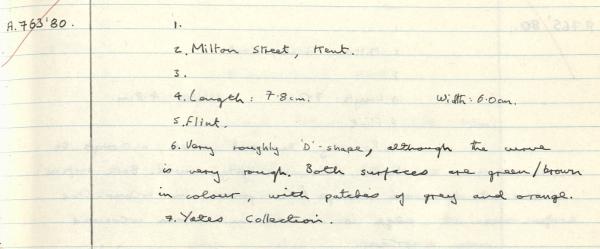 A.763'80.
1.
2. Milton Street, Kent.
3.
4. Length: 7.8cm. Width: 6.0cm.
5. Flint.
6. Very roughly 'D'-shape, although the curve
is very rough. Both surfaces are green/brown
in colour, with patches of grey and orange.
7. Yates Collection.